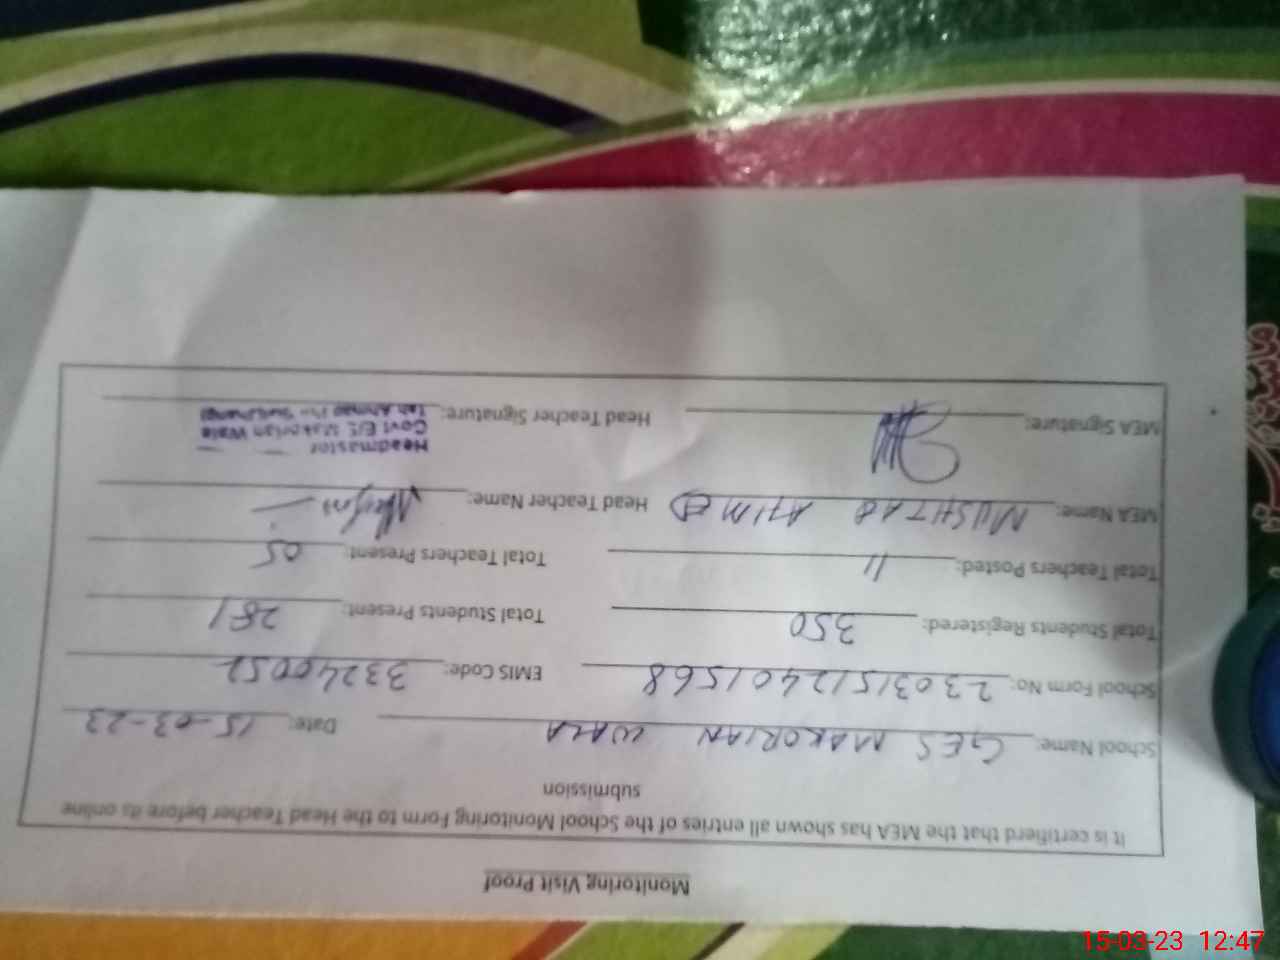 Monitoring Visit Proof
It is certifierd that the MEA has shown all entries of the School Monitoring Form to the Head Teacher before its online
submission
School Name: GES MAKORIAN WALA Date: 15-03-23
School Form No: 230315112401568 EMIS Code: 33240052
Total Students Registered: 350 Total Students Present: 281
Total Teachers Posted: 11 Total Teachers Present: 05
MEA Name: MUSHTAQ AHMED Head Teacher Name:
MEA Signature: Head Teacher Signature:
Headmaster
Govt E/S Makorian Wala
15-03-23 12:47